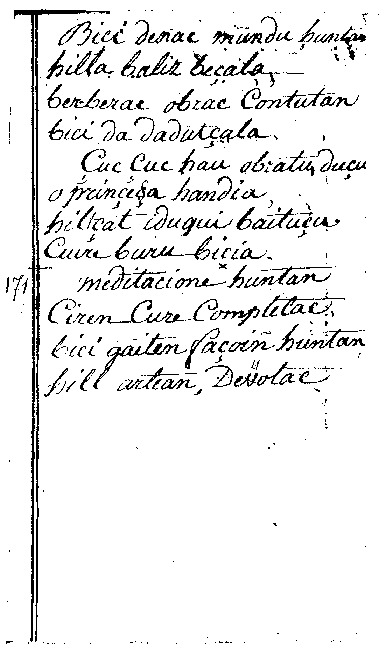 Bici denac mundu huntan
hilla baliz beçala,
berberac obrac Contutan
bici da daducçala.
Cuc Cuc hau obratu duçu
o princeça handia,
hilçat iduqui baituçu
Cure buru bicia.
171 meditacione huntan
Ciren Cure Completac,
bici gaiten façoin huntan
hill artean, Devotac